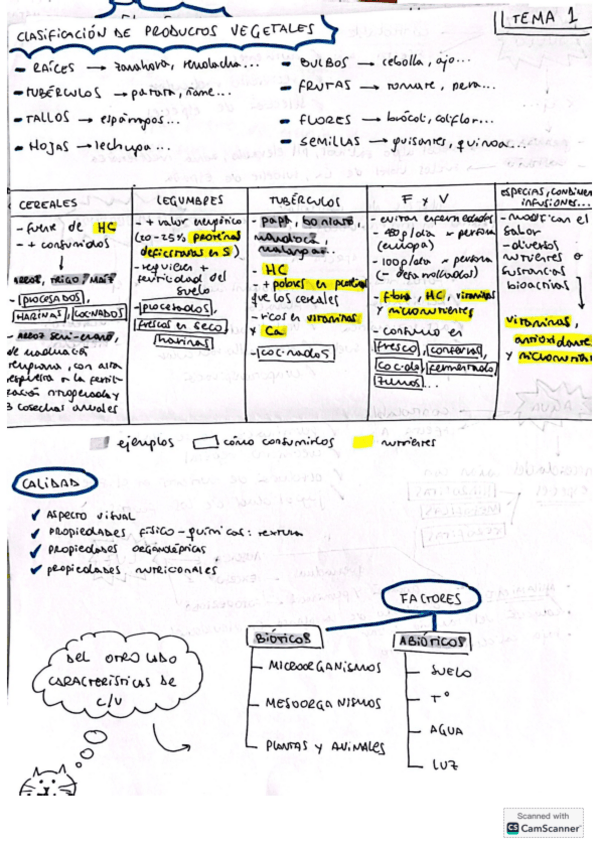 TEMA 1
CLASIFICACIÓN DE PRODUCTOS VEGETALES
- RAÍCES → zanahoria, remolacha...
- TUBÉRCULOS → patata, ñame...
- TALLOS → espárragos...
- HOJAS → lechuga...
- BULBOS → cebolla, ajo...
- FRUTAS → tomate, pera...
- FLORES → brócoli, coliflor...
- SEMILLAS → guisantes, quinoa...
CEREALES
- fuente de HC
- + consumidos
ARROZ, TRIGO, MAÍZ
- PROCESADOS,
HARINAS, COCINADOS
- ARROZ SEMI-ENANO,
de maduración
temprana, con alta
respuesta a la fertili-
zación nitrogenada y
3 cosechas anuales
LEGUMBRES
- + valor energético
(20-25% proteínas
deficitarias en S)
- requieren +
fertilidad del
suelo
- procesados,
frescos en seco
harinas
TUBÉRCULOS
- papa, boniato,
mandioca,
malangas...
- HC
- + pobres en proteínas
que los cereales
- ricos en vitaminas y
Ca
- cocinados
F y V
- evitan enfermedades
p/día ~ persona
(europa)
- 100 p/día ~ persona
(- desarrollados)
- fibra, HC, vitaminas
y micronutrientes
- consumo en
fresco, conservas,
cocido, fermentado,
zumos...
ESPECIAS, CONDIMEN
INFUSIONES...
- modifican el
sabor
- diversos
nutrientes o
sustancias
bioactivas
vitaminas,
antioxidante
y micronutri
ejemplos cómo consumirlos nutrientes
CALIDAD
✓ ASPECTO VISUAL
✓ PROPIEDADES FÍSICO-QUÍMICAS: TEXTURA
✓ PROPIEDADES ORGANOLÉPTICAS
✓ PROPIEDADES NUTRICIONALES
FACTORES
BIÓTICOS
MICROORGANISMOS
MESOORGANISMOS
PLANTAS Y ANIMALES
ABIÓTICOS
SUELO
Tº
AGUA
LUZ
DEL OTRO LADO
CARACTERÍSTICAS DE
C/U
Scanned with
CS CamScanner